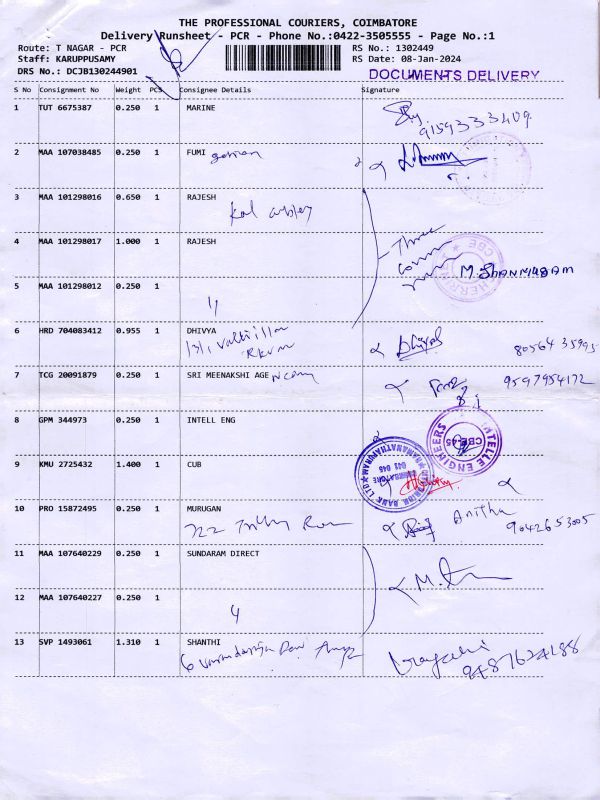 THE PROFESSIONAL COURIERS, COIMBATORE
Delivery Runsheet - PCR - Phone No.:0422-3505555 - Page No.:1
Route: T NAGAR - PCR RS No.: 1302449
Staff: KARUPPUSAMY RS Date: 08-Jan-2024
DRS No.: DCJB130244901 DOCUMENTS DELIVERY
S No Consignment No Weight PCS Consignee Details Signature
1 TUT 6675387 0.250 1 MARINE
9159333409
2 MAA 107038485 0.250 1 FUMI
3 MAA 101298016 0.650 1 RAJESH
4 MAA 101298017 1.000 1 RAJESH
Three
M. SHANMUGAM
5 MAA 101298012 0.250 1
6 HRD 704083412 0.955 1 DHIVYA
7 TCG 20091879 0.250 1 SRI MEENAKSHI AGENCY
9597954172
8 GPM 344973 0.250 1 INTELL ENG
INTELLE ENGINEERS
CBE-45
9 KMU 2725432 1.400 1 CUB
10 PRO 15872495 0.250 1 MURUGAN
Anitha
9042653005
11 MAA 107640229 0.250 1 SUNDARAM DIRECT
12 MAA 107640227 0.250 1
13 SVP 1493061 1.310 1 SHANTHI
9487624188